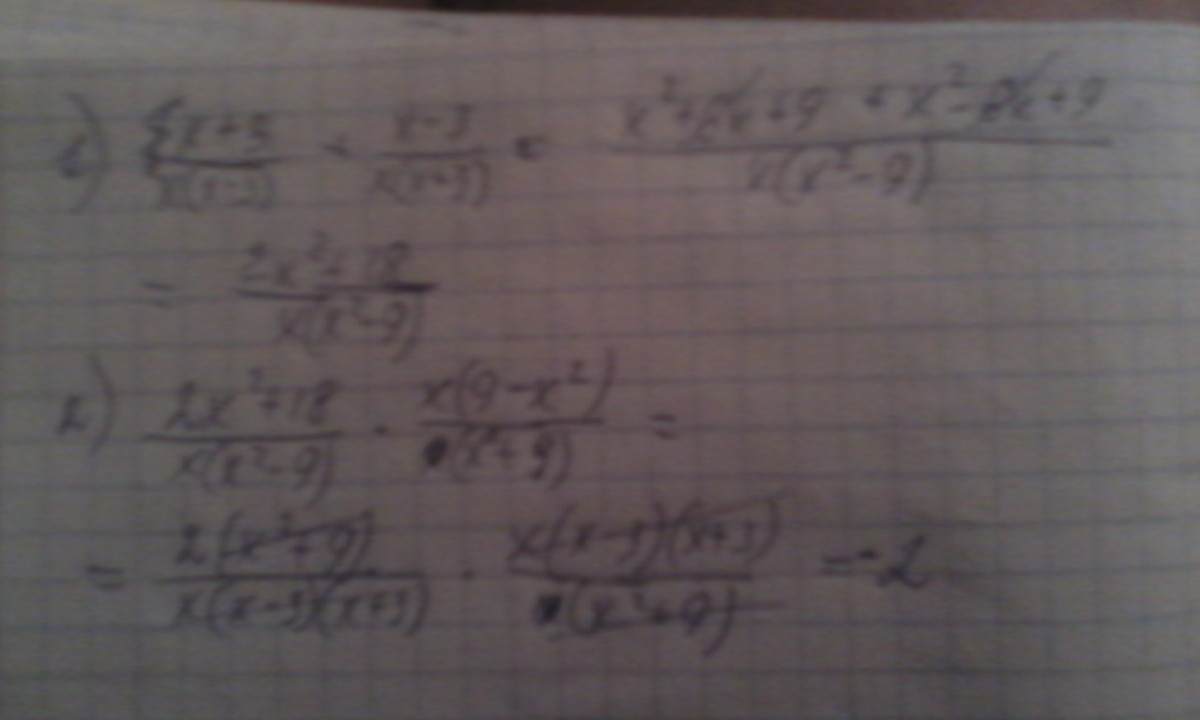 1) x+3/x(x-3) + x-3/x(x+3) = x²+2x+9 + x²-2x+9/x(x²-9)
= 2x²+18/x(x²-9)
2) 2x²+18/x(x²-9) · x(9-x²)/(x²+9) =
= 2(x²+9)/x(x-3)(x+3) · x(x-3)(x+3)/(x²+9) = -2